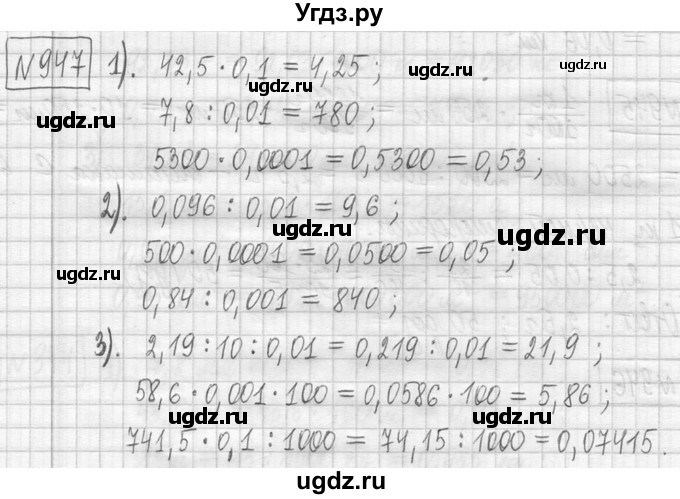 Угдз.ру
№947 1). 42,5 · 0,1 = 4,25 ;
ugdz.ru
ugdz.ru
7,8 : 0,01 = 780 ;
ugdz.ru
ugdz.ru
5300 · 0,0001 = 0,5300 = 0,53 ;
2). 0,096 : 0,01 = 9,6 ;
ugdz.ru
ugdz.ru
500 · 0,0001 = 0,0500 = 0,05 ;
ugdz.ru
0,84 : 0,001 = 840 ;
3). 2,19 : 10 : 0,01 = 0,219 : 0,01 = 21,9 ;
ugdz.ru
ugdz.ru
58,6 · 0,001 · 100 = 0,0586 · 100 = 5,86 ;
ugdz.ru
ugdz.ru
741,5 · 0,1 : 1000 = 74,15 : 1000 = 0,07415.
ugdz.ru
ugdz.ru